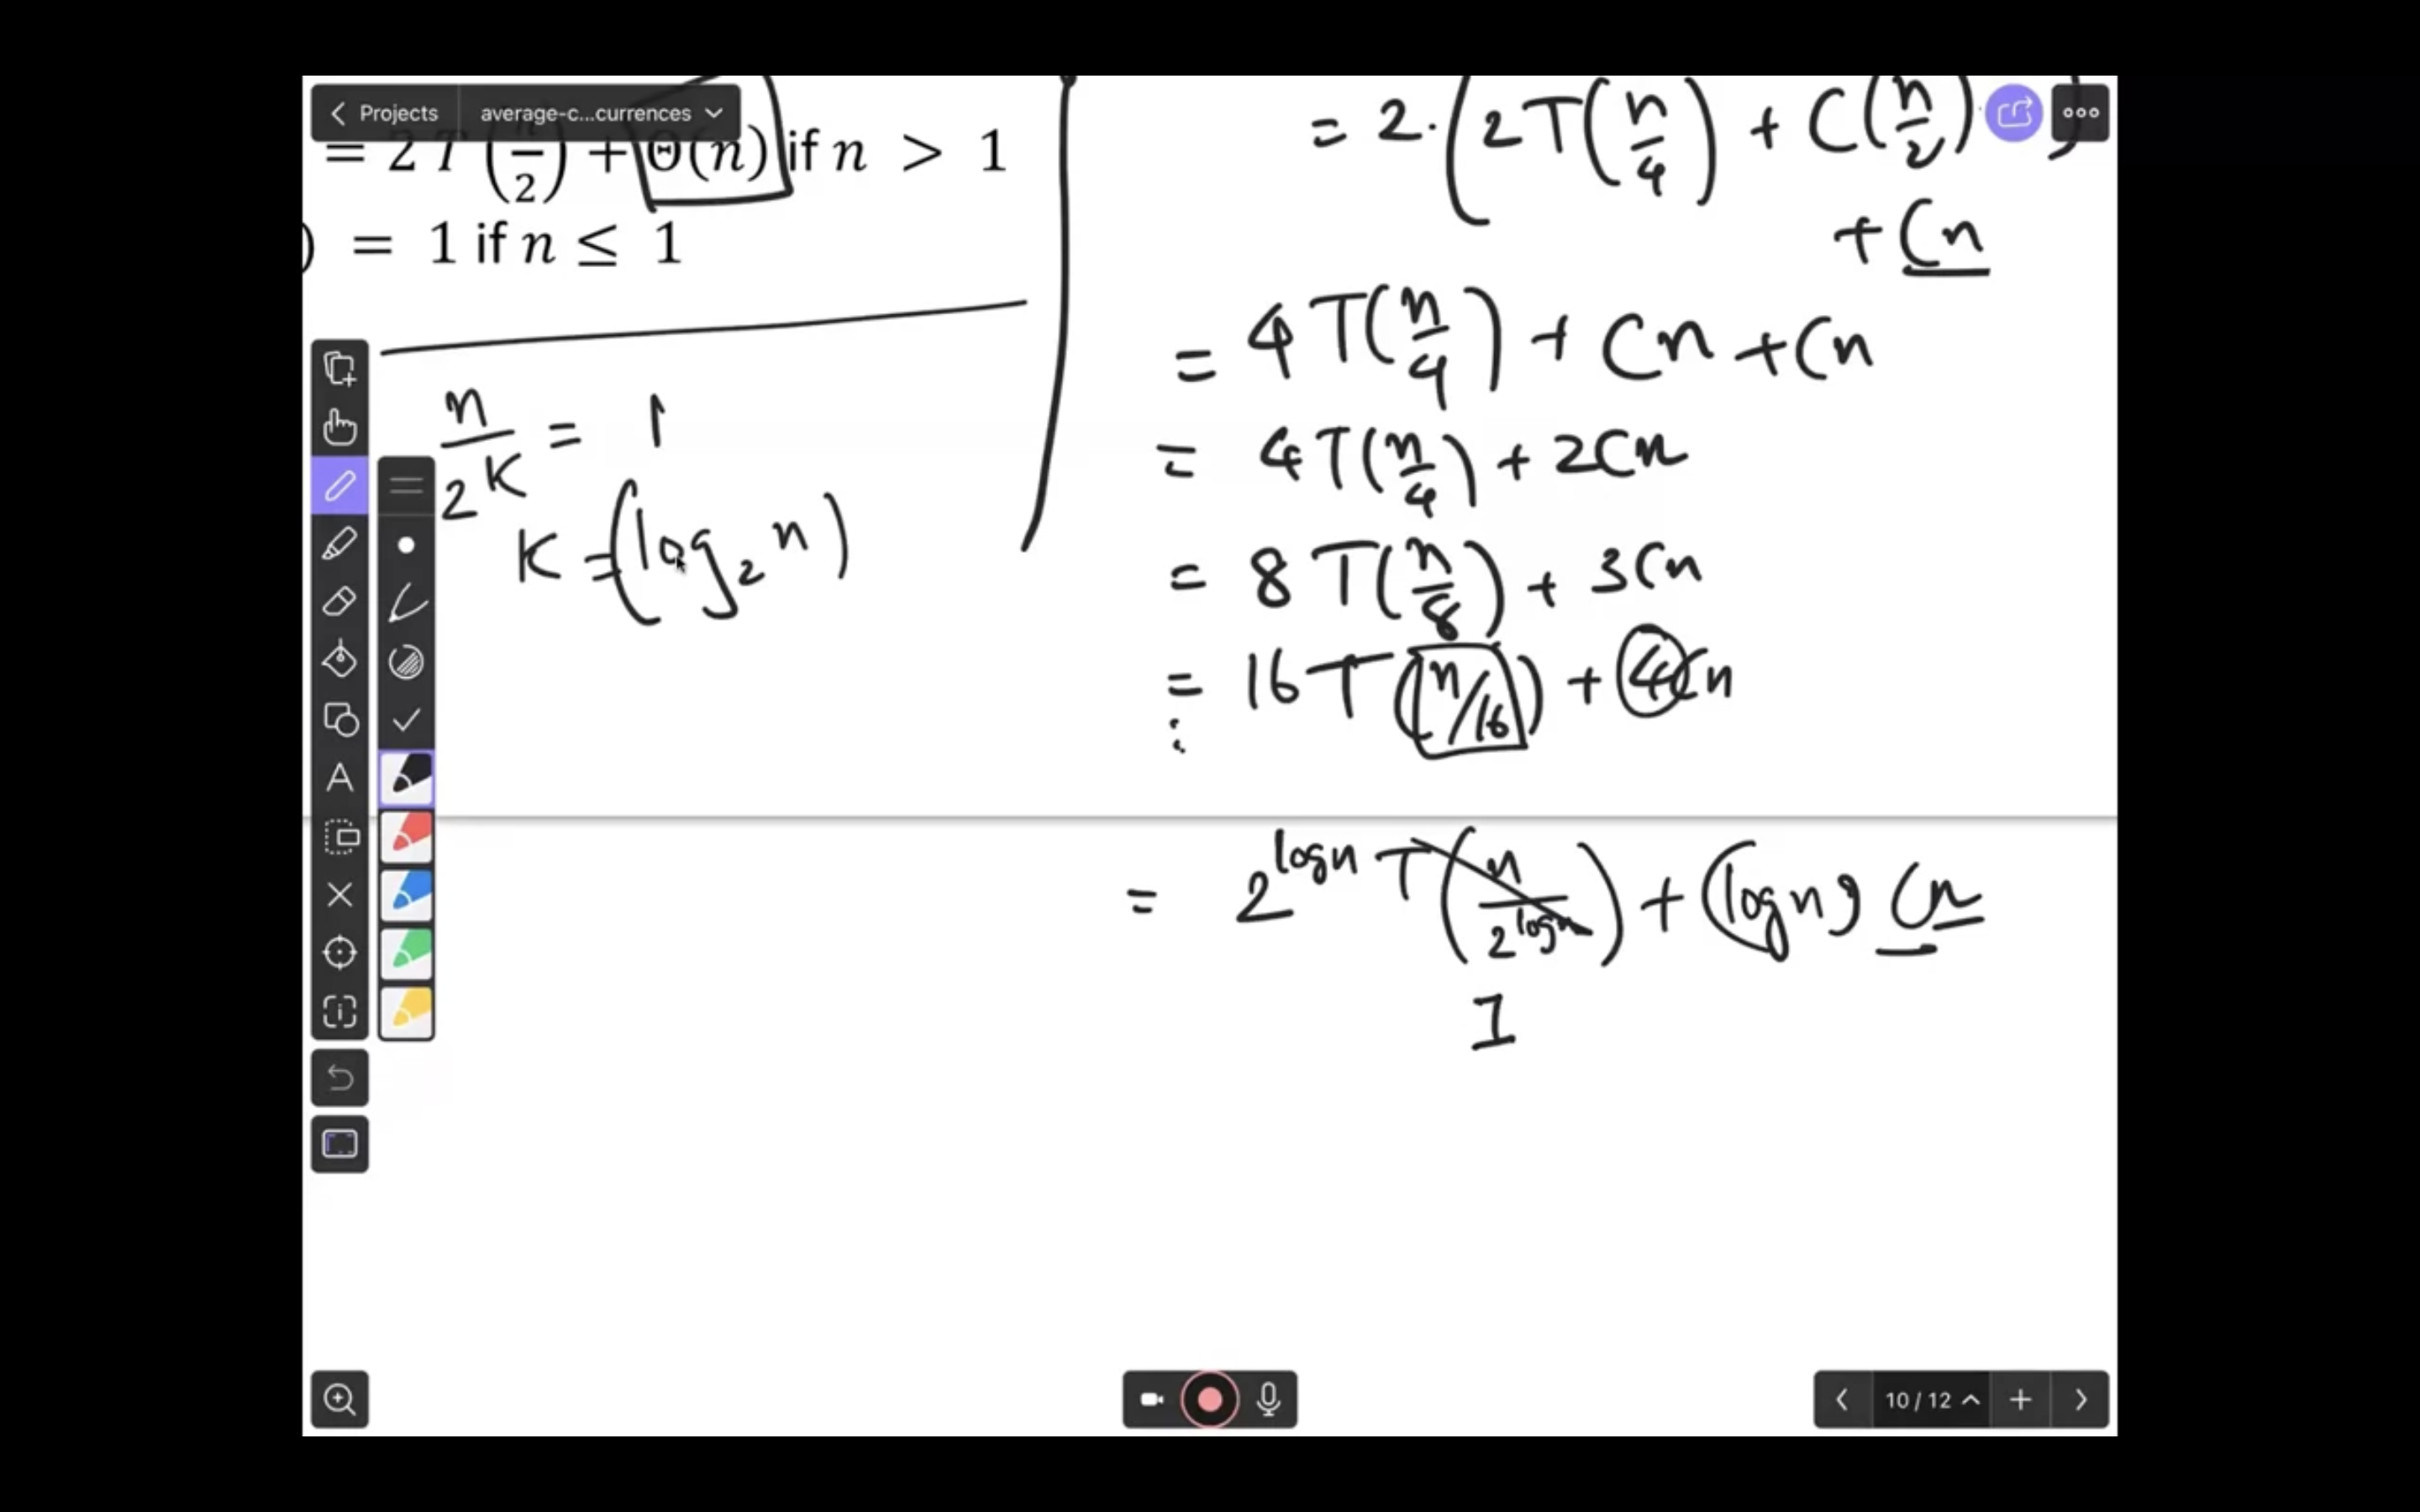 Projects
average-c...currences
= 2 T (n/2) + Θ(n) if n > 1
) = 1 if n ≤ 1
n/2^K = 1
K = (log₂ n)
= 2·(2T(n/4) + C(n/2))
+ Cn
= 4T(n/4) + Cn + Cn
= 4T(n/4) + 2Cn
= 8T(n/8) + 3Cn
= 16T(n/16) + 4Cn
⋮
= 2^logn T(n/2^logn) + (logn) Cn
1
A
10 / 12